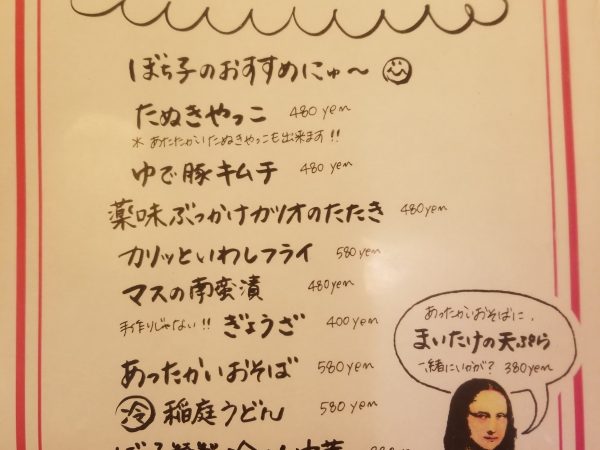 ぼち子のおすすめにゅ〜
たぬきやっこ 480yen
※ あたたかいたぬきやっこも出来ます!!
ゆで豚キムチ 480yen
薬味ぶっかけガツオのたたき 480yen
カリッといわしフライ 580yen
マスの南蛮漬 480yen
手作りじゃない!! ぎょうざ 400yen
あったかいおそば 580yen
冷 稲庭うどん 580yen
あったかいおそばに、
まいたけの天ぷら
一緒にいかが? 380yen